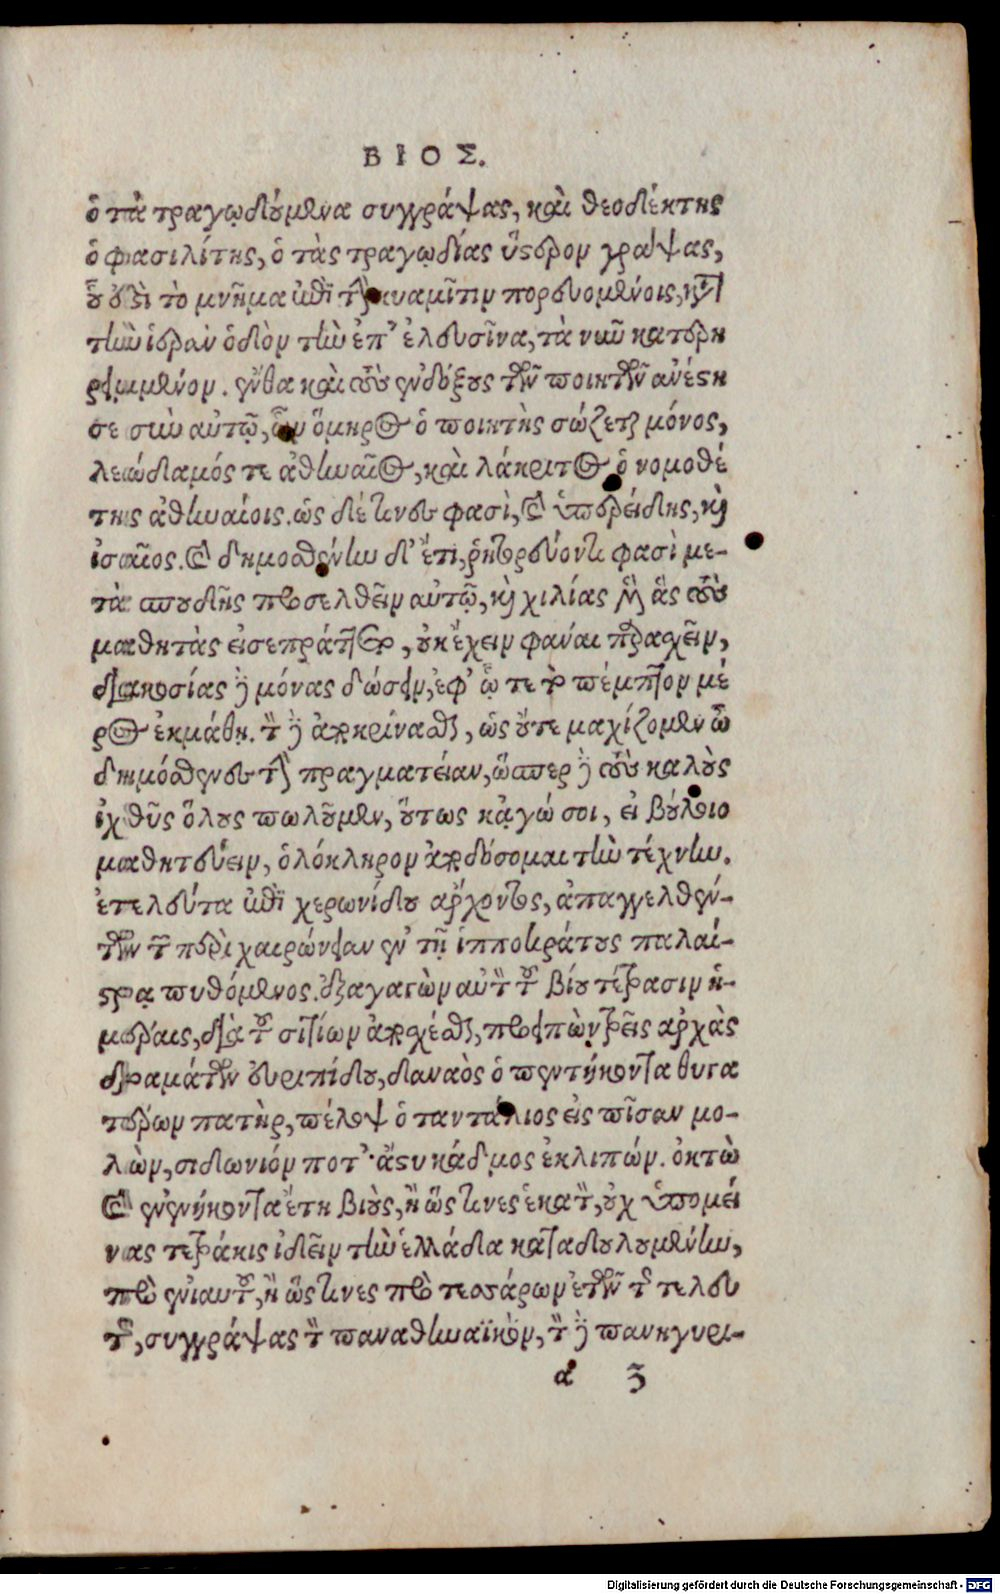 ΒΙΟΣ.
ὁ τὰ τραγῳδούμενα συγγράψας, καὶ θεοδέκτης
ὁ φασιλίτης, ὁ τὰς τραγῳδίας ὕστερον γράψας,
οὗ ἐστὶ τὸ μνῆμα ἐπὶ τὴν κυαμῖτιν πορευομένοις, κατὰ
τὴν ἱερὰν ὁδὸν τὴν ἐπ' ἐλευσῖνα, τὰ νῦν κατερη
ρειμμένον. ἔνθα καὶ τοὺς ἐνδόξους τῶν ποιητῶν ἀνέστη
σε σὺν αὐτῷ, ὧν ὅμηρος ὁ ποιητὴς σώζεται μόνος,
λεώδαμός τε ἀθηναῖος, καὶ λάκριτος ὁ νομοθέ
της ἀθηναίοις. ὡς δέ τινες φασὶ, καὶ ὑπερείδης, καὶ
ἰσαῖος. καὶ δημοσθένην δ' ἔτι, ῥητορεύοντι φασὶ με-
τὰ σπουδῆς προσελθεῖν αὐτῷ, καὶ χιλίας μὲν ἃς τοὺς
μαθητὰς εἰσεπράττετο, οὐκ ἔχειν φάναι παρασχεῖν,
διακοσίας δὲ μόνας δώσειν, ἐφ' ᾧ τε τὸ πέμπτον μέ
ρος ἐκμάθῃ. τὸν δὲ ἀποκρίνασθαι, ὡς οὔτε μαχίζομεν ὦ
δημόσθενες τὴν πραγματείαν, ὥσπερ δὲ τοὺς καλοὺς
ἰχθῦς ὅλους πωλοῦμεν, οὕτως κᾀγώ σοι, εἰ βούλοιο
μαθητεύειν, ὁλόκληρον ἀποδόσομαι τὴν τέχνην.
ἐτελεύτα ἐπὶ χερωνίδου ἄρχοντος, ἀπαγγελθέν-
των τῶν περὶ χαιρώνειαν ἐν τῇ ἱπποκράτους παλαί-
στρᾳ πυθόμενος. ἐξαγαγὼν αὑτὸν τοῦ βίου τέτρασιν ἡ-
μέραις, διὰ τοῦ σιτίων ἀποσχέσθαι, προειπὼν τρεῖς ἀρχὰς
δραμάτων εὐριπίδου, δαναὸς ὁ πεντήκοντα θυγα
τέρων πατὴρ, πέλοψ ὁ ταντάλιος εἰς πῖσαν μο-
λὼν, σιδωνιόν ποτ' ἄστυ κάδμος ἐκλιπών. ὀκτὼ
καὶ ἐνενήκοντα ἔτη βιοὺς, ἢ ὥς τινες ἑκατὸν, οὐχ ὑπομεί
νας τετράκις ἰδεῖν τὴν ἑλλάδα καταδουλουμένην,
πρὸ ἐνιαυτοῦ, ἢ ὥς τινες πρὸ τεσσάρων ἐτῶν τῆς τελευ
τῆς, συγγράψας τὸν παναθηναϊκὸν, τὸν δὲ πανηγυρι-
α 3
Digitalisierung gefördert durch die Deutsche Forschungsgemeinschaft - DFG